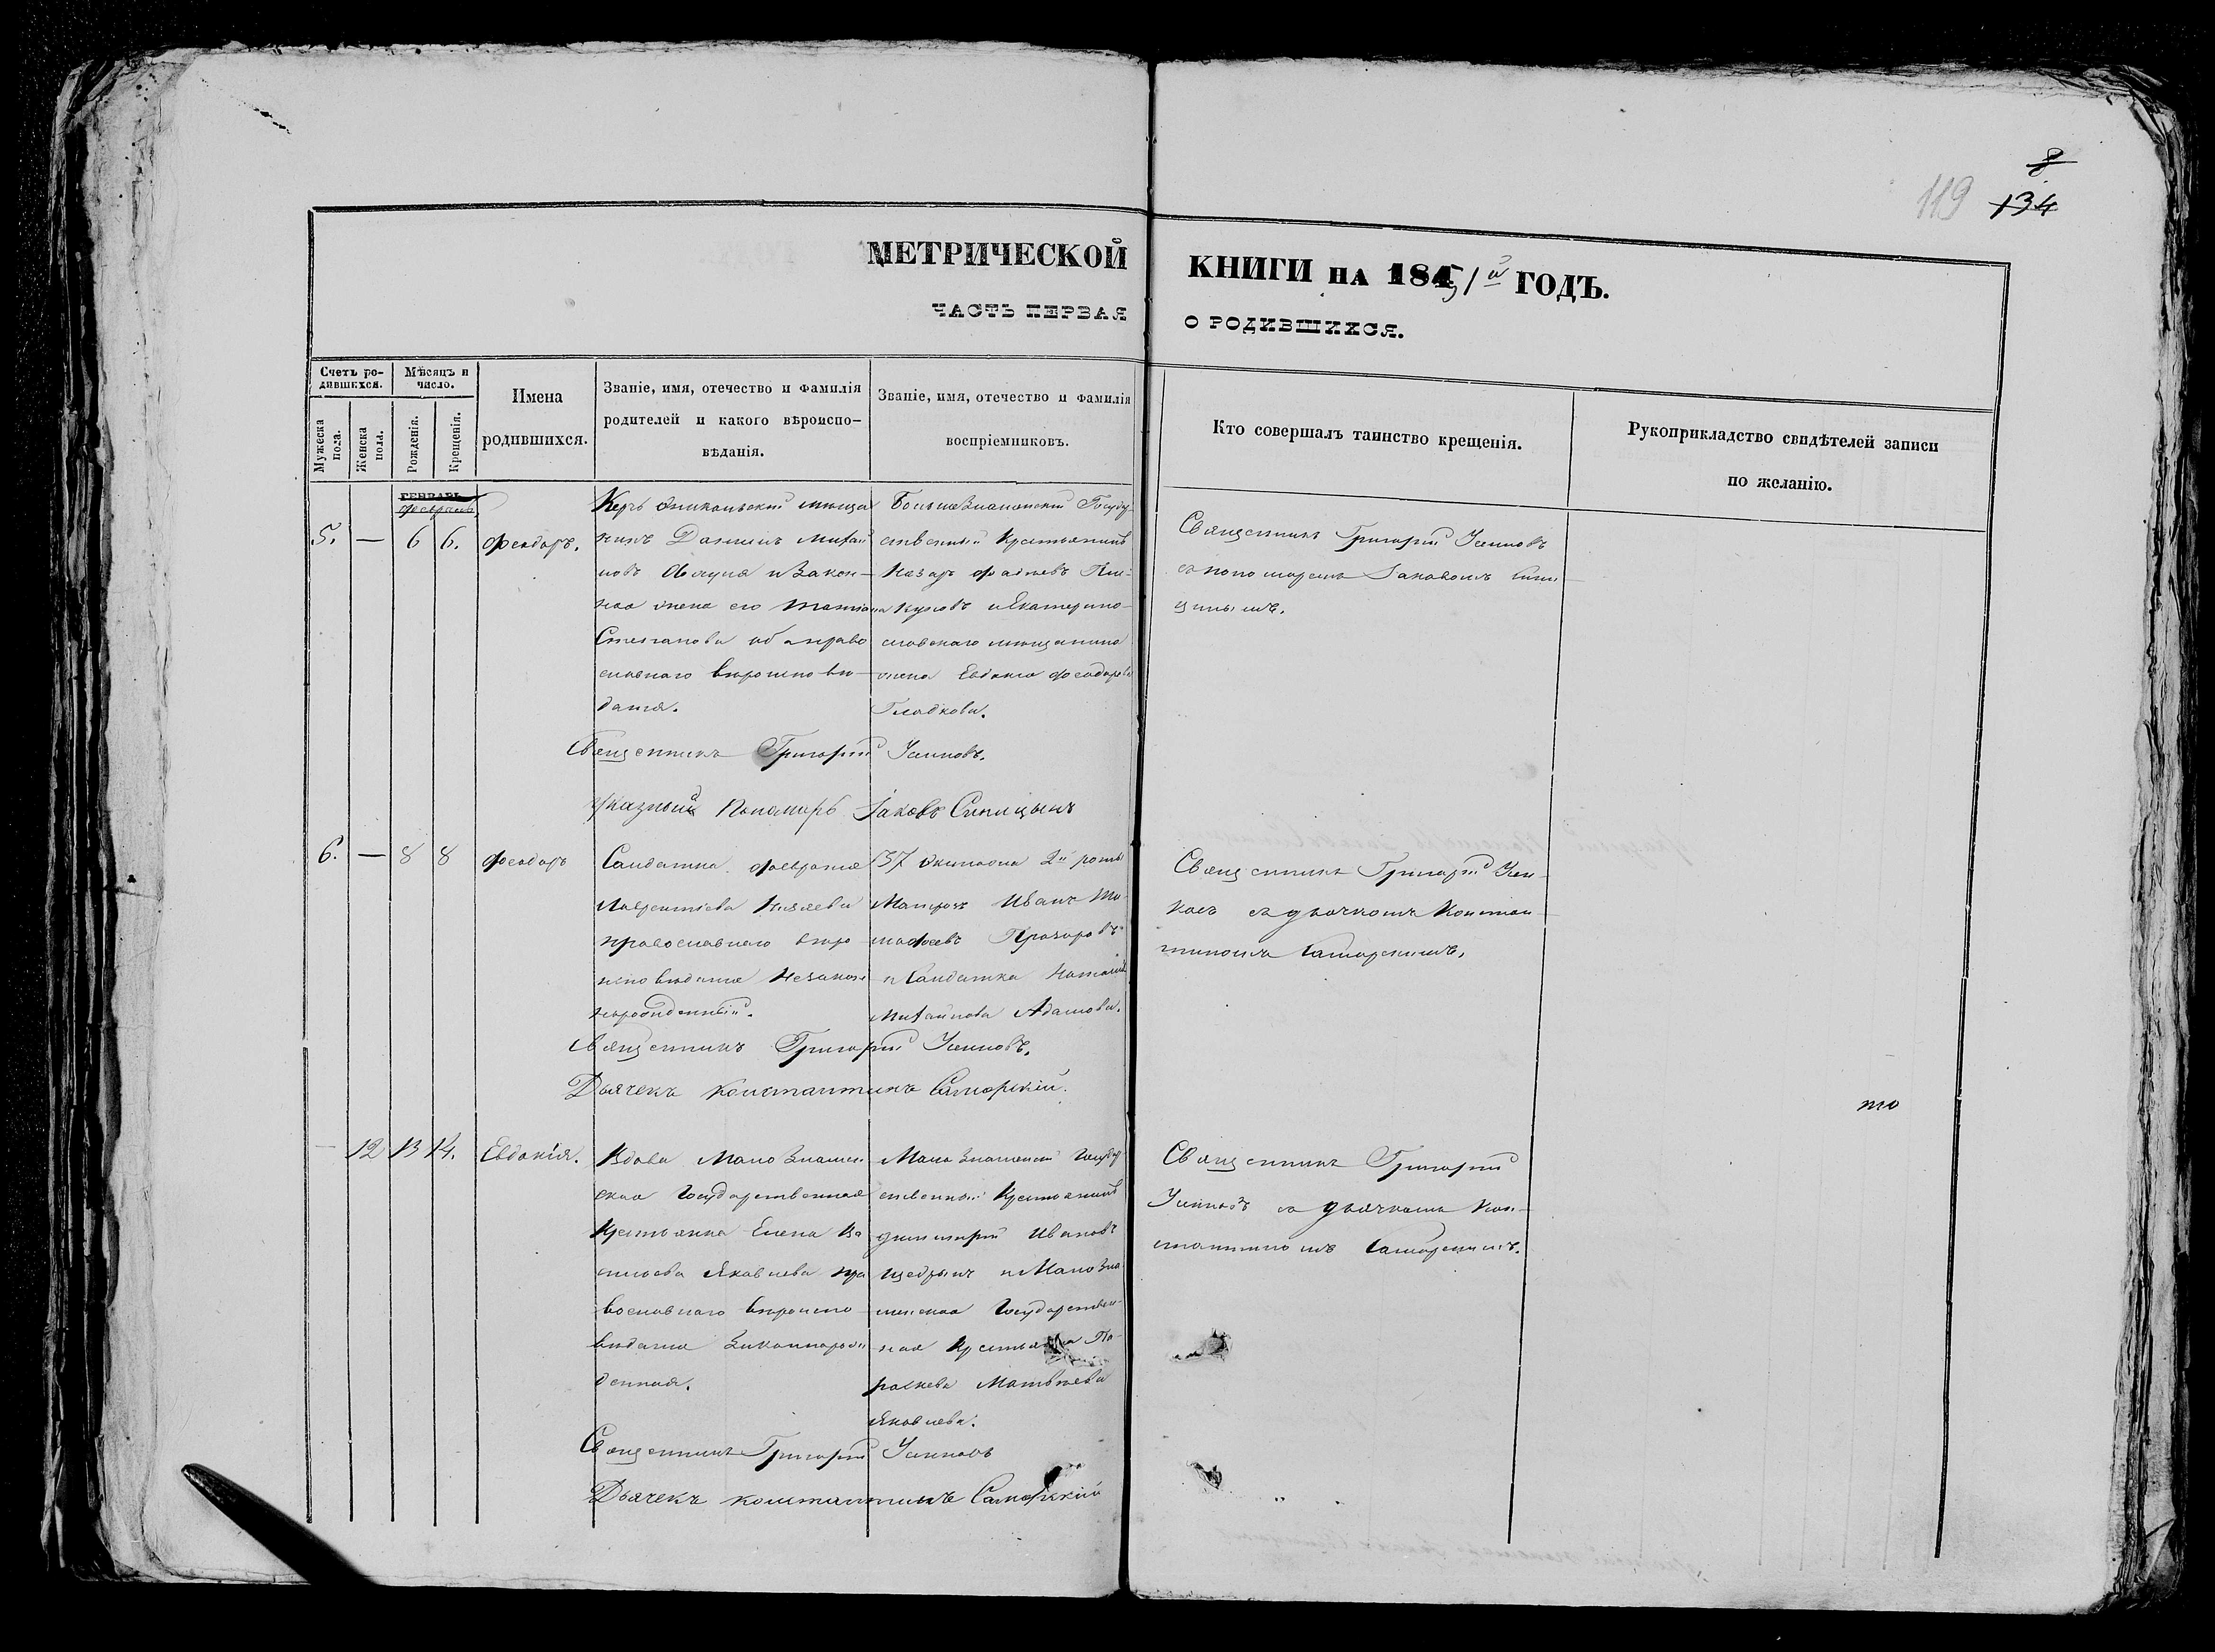 8
119 134
МЕТРИЧЕСКОЙ КНИГИ на 1851й ГОДЪ.
ЧАСТЬ ПЕРВАЯ О РОДИВШИХСЯ.
Счетъ ро-
дившихся.
Мужеска пола.
Женска пола.
Мѣсяцъ и
число.
Рожденія.
Крещенія.
Имена
родившихся.
Званіе, имя, отечество и фамилія
родителей и какого вѣроиспо-
вѣданія.
Званіе, имя, отечество и фамилія
воспріемниковъ.
Кто совершалъ таинство крещенія.
Рукоприкладство свидѣтелей записи
по желанію.
генварь
февраль
5. — 6 6. Феодоръ.
Керчь Эникольскій мѣща
нинъ Даніилъ Михай
ловъ и Закон-
ная жена его Татіана
Степанова оба право
славнаго вѣроисповѣ-
данія.
БольшеЗнаменскій Госуду-
ственный Крестьянинъ
Назаръ
и Екатерино-
славскаго мещанина
жена Евдокія Феодорова
Гладкова.
Священникъ Григорій
съ пономаремъ Іаковомъ Сини
цынымъ.
Священникъ Григорій
Указный Пономарь Іаковъ Синицынъ
6. — 8 8 Феодоръ
Солдатка Февронія
Лаврентіева
православнаго вѣро
исповѣданія Незакон
норожденный.
37 экипажа 2й роты
Матрозъ Иванъ Ти-
мофеевъ Прозоровъ
и Солдатка Наталія
Михайлова Адамова.
Священникъ Григорій
съ дьячкомъ Констан-
тиномъ Саморскимъ.
Священникъ Григорій
Дьячекъ Константинъ Саморскій.
то
— 12 13 14. Евдокія.
Вдова Мало Знамен
ская Государственная
Крестьянка Елена Ва
сильева Яковлева пра
вославнаго вѣроиспо-
вѣданія Законнорож
денная.
Мало Знаменскій Госуду-
ственный Крестьянинъ
Димитрій Ивановъ
Щедрынъ и Мало Зна
менская Государствен-
ная Крестьянка Па-
раскева Матвѣева
Яковлева.
Священникъ Григорій
съ дьячкомъ Кон-
стантиномъ Саморскимъ.
Священникъ Григорій
Дьячекъ Константинъ Саморскій